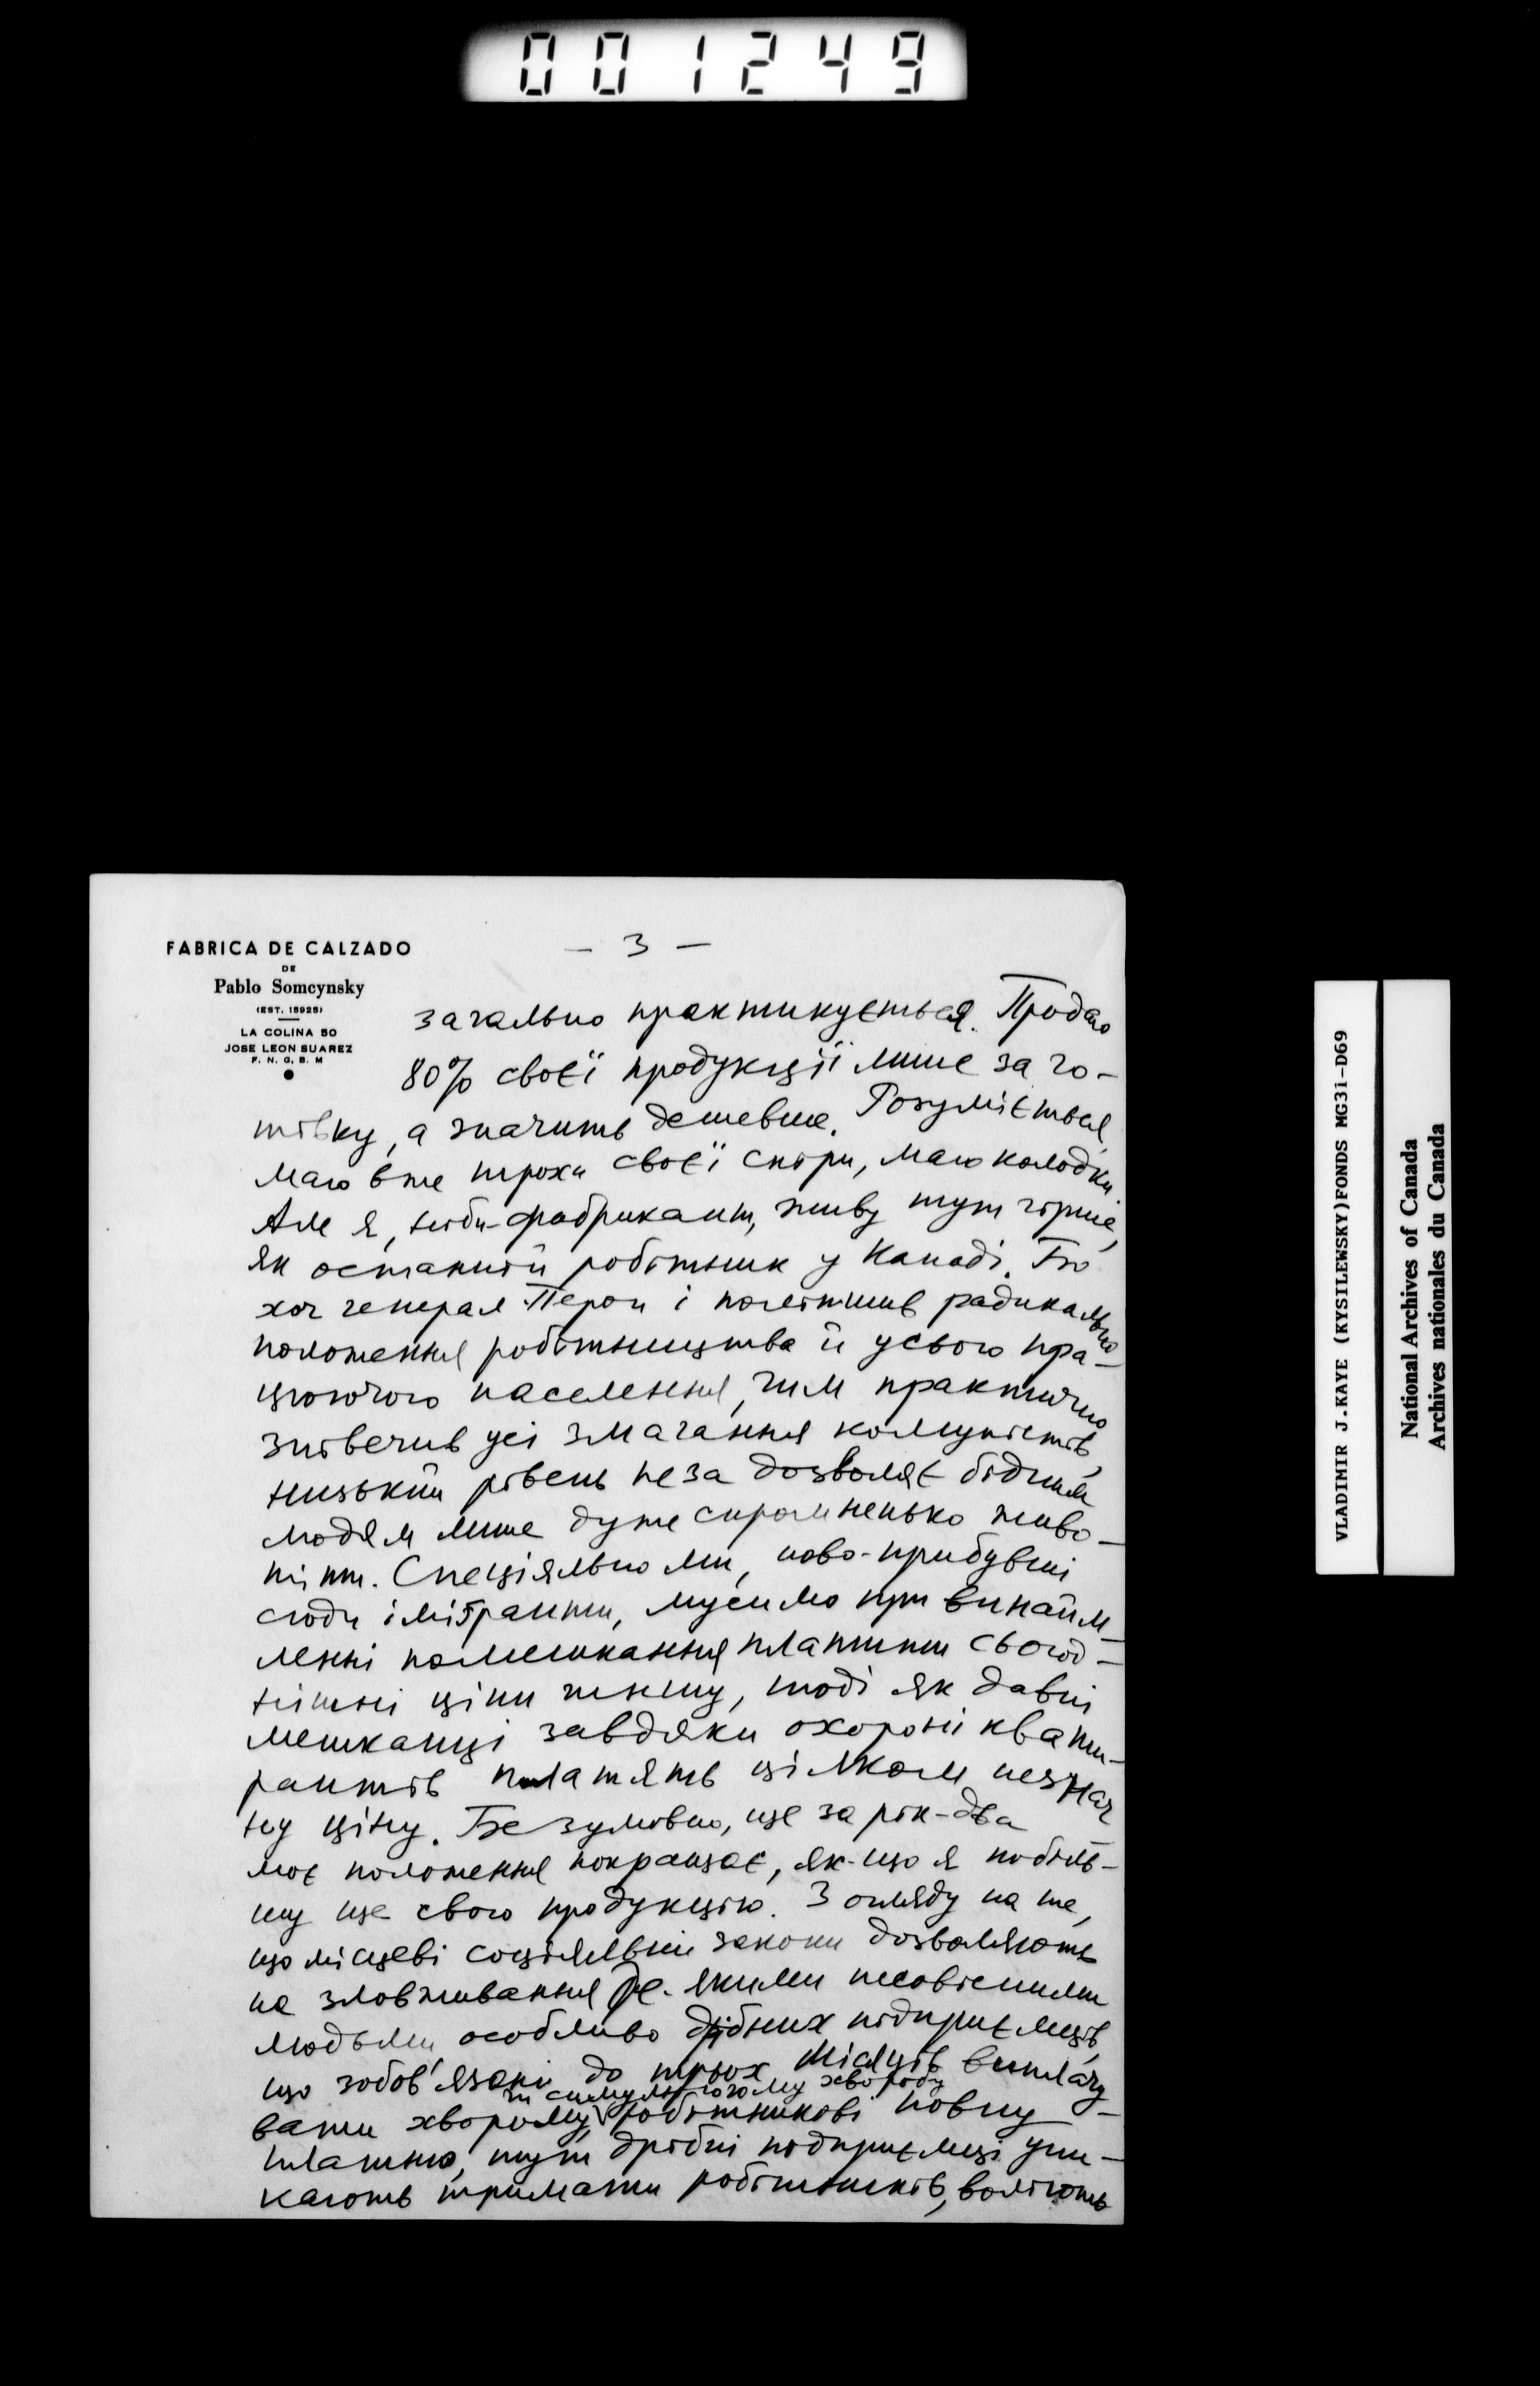 001249
FABRICA DE CALZADO
DE
Pablo Somcynsky
(EST. 15925)
LA COLINA 50
JOSE LEON SUAREZ
F. N. G. B. M
– 3 –
загально практикується. Продаю
80% своєї продукції лише за го-
тівку, а значить дешевше. Розуміється,
маю вже трохи своєї скіри, маю колодки.
Але я, ніби-фабрикант, живу тут гірше,
як останній робітник у Канаді. Бо
хоч генерал Перон і поліпшив радикально
положення робітництва й усього пра-
цюючого населення, чим практично
знівечив усі змагання комуністів,
низький рівень пеза дозволяє бідним
людям лише дуже скромненько живо-
тіти. Спеціяльно ми, ново-прибувші
сюди іміґранти, мусимо при винайм-
ленні помешкання платити сьогод-
нішні ціни чиншу, тоді як давні
мешканці завдяки охороні квати-
рантів платять цілком незнач
ну ціну. Безумовно, ще за рік-два
моє положення покращає, як-що я побіль-
шу ще свою продукцію. З огляду на те,
що місцеві соціяльні закони дозволяють
на зловживання де-якими несовісними
людьми особливо дрібних підприємців,
що зобов'язані до трьох місяців виплачу
чи симулюючому хворобу
вати хворому, робітникові повну –
платню, тут дрібні підприємці уни-
кають тримати робітників, воліють
VLADIMIR J.KAYE (KYSILEWSKY)FONDS MG31-D69
National Archives of Canada
Archives nationales du Canada